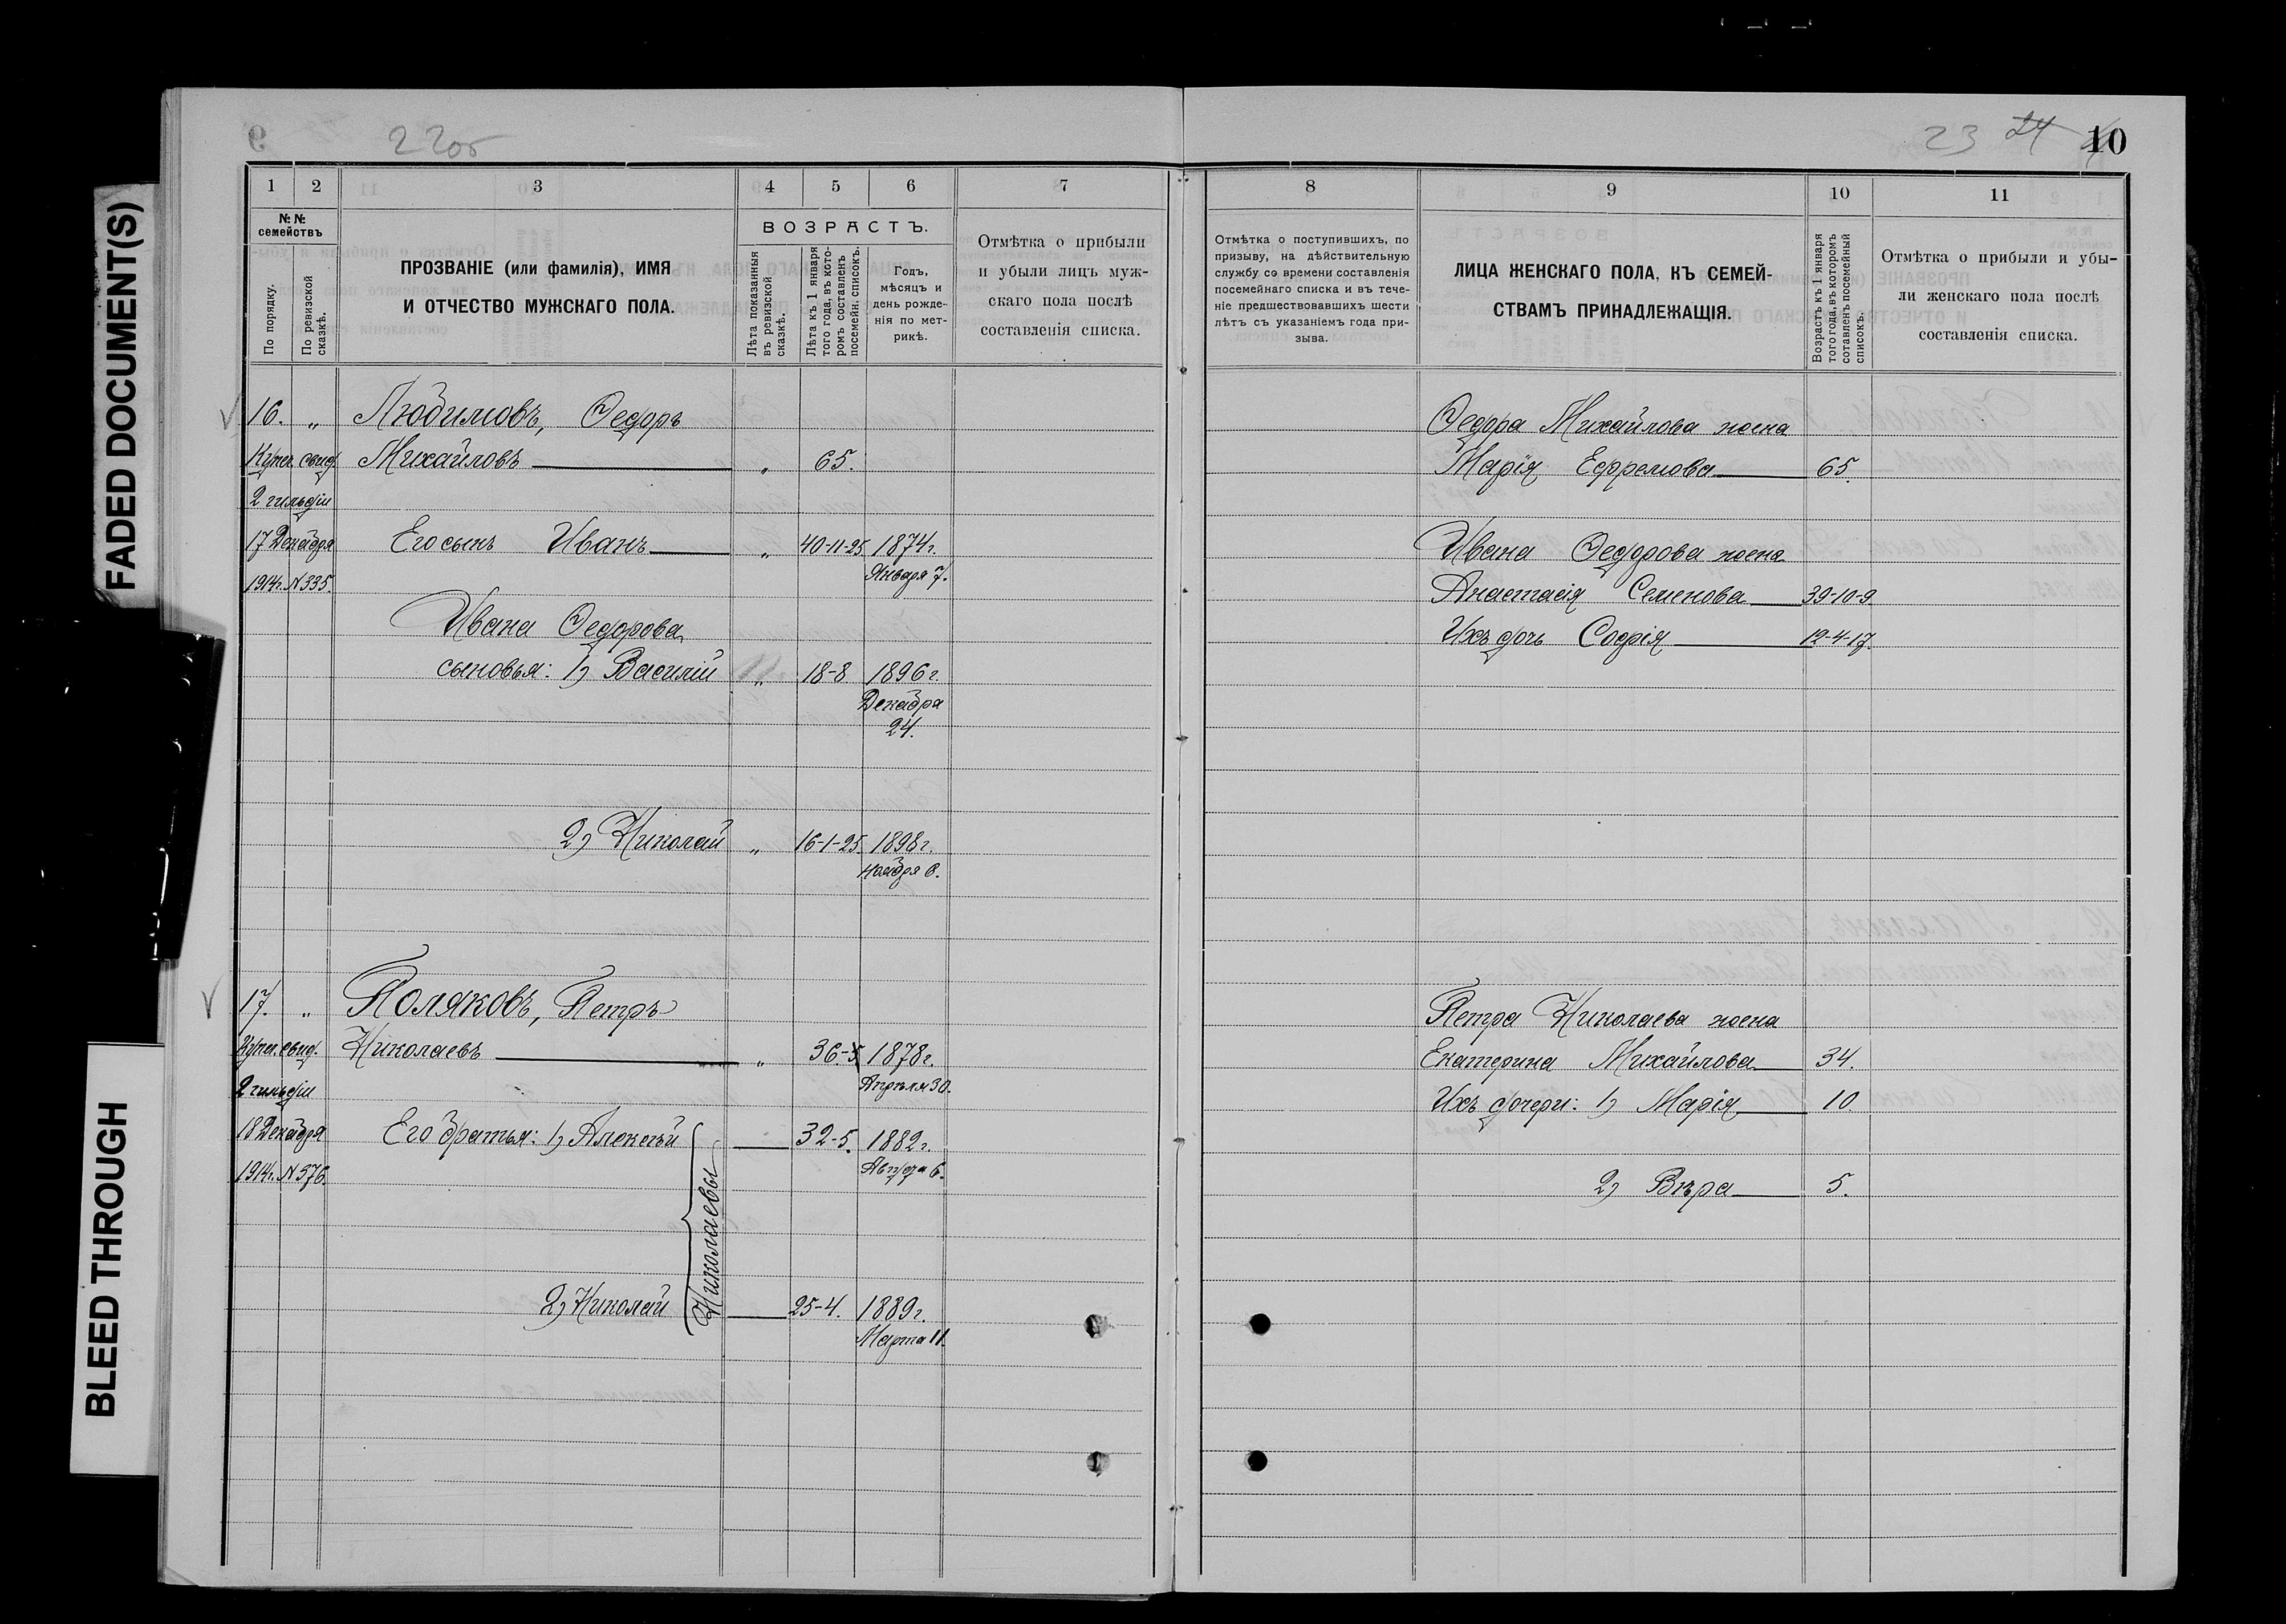 FADED DOCUMENT(S)
BLEED THROUGH
22об
1 2 3 4 5 6 7
№№ семействъ
По порядку.
По ревизской сказкѣ.
ПРОЗВАНІЕ (или фамилія), ИМЯ
И ОТЧЕСТВО МУЖСКАГО ПОЛА.
ВОЗРАСТЪ.
Лѣта показанныя въ ревизской сказкѣ.
Лѣта къ 1 января того года, въ которомъ составленъ посемейн. списокъ.
Годъ,
мѣсяцъ и
день рожде-
нія по мет-
рикѣ.
Отмѣтка о прибыли
и убыли лицъ муж-
скаго пола послѣ
составленія списка.
16. „ Любимовъ, Ѳедоръ
Купеч. свид. Михайловъ „ 65.
2 гильдіи
17 Декабря Его сынъ Иванъ „ 40-11-25 1874 г.
1914 г. N 335. Января 7.
Ивана Ѳедорова
сыновья: 1) Василій „ 18-8 1896 г.
Декабря
24.
2) Николай „ 16-1-25. 1898 г.
Ноября 6.
17. „ Поляковъ, Петръ
Купеч. свид. Николаевъ „ 36-5 1878 г.
2 гильдіи Апрѣля 30.
18 Декабря Его братья: 1) Алексѣй 32-5. 1882 г.
1914 г. N 576.
Николаевы
2) Николай 25-4. 1889 г.
Марта 11.
23 24 10
8 9 10 11
Отмѣтка о поступившихъ, по
призыву, на дѣйствительную
службу со времени составленія
посемейнаго списка и въ тече-
ніе предшествовавшихъ шести
лѣтъ съ указаніемъ года при-
зыва.
ЛИЦА ЖЕНСКАГО ПОЛА, КЪ СЕМЕЙ-
СТВАМЪ ПРИНАДЛЕЖАЩІЯ.
Возрастъ къ 1 января
того года, въ которомъ
сотавленъ посемейный
списокъ.
Отмѣтка о прибыли и убы-
ли женскаго пола послѣ
составленія списка.
Ѳедора Михайлова жена
Марія Ефремова 65.
Ивана Ѳедорова жена
Анастасія Семенова 39-10-9
Ихъ дочь Софія 12-4-17.
Петра Николаева жена
Екатерина Михайлова 34.
Ихъ дочери: 1) Марія 10.
2) Вѣра 5.